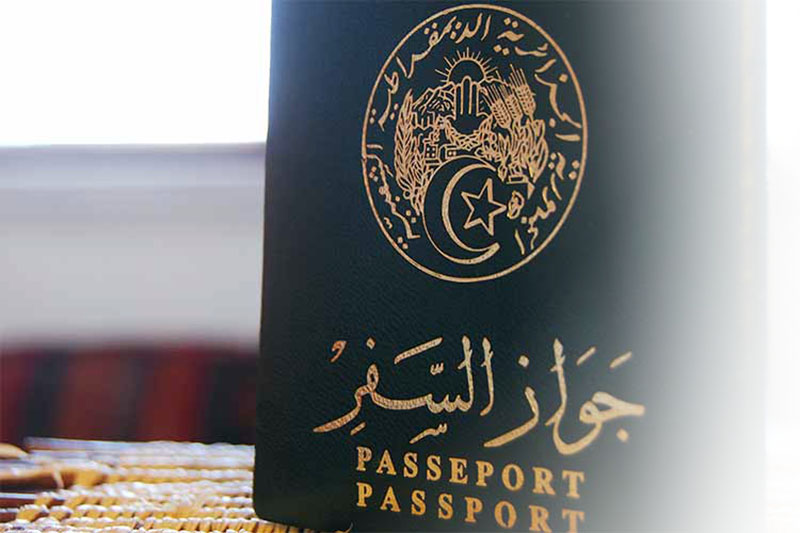 الجمهورية الجزائرية الديمقراطية الشعبية
جَوَاز السَّفَر
PASSEPORT
PASSPORT